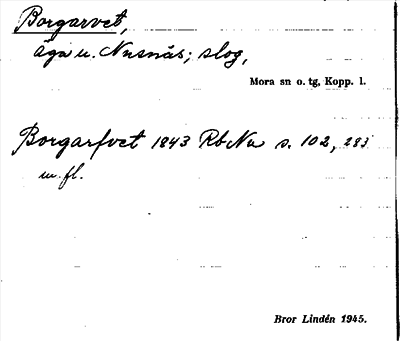 Borgarvet,
äga u. Nusnäs; slog,
Mora sn o. tg, Kopp. l.
Borgarfvet 1843 Rb Nu s. 102, 283
m. fl.
Bror Lindén 1945.